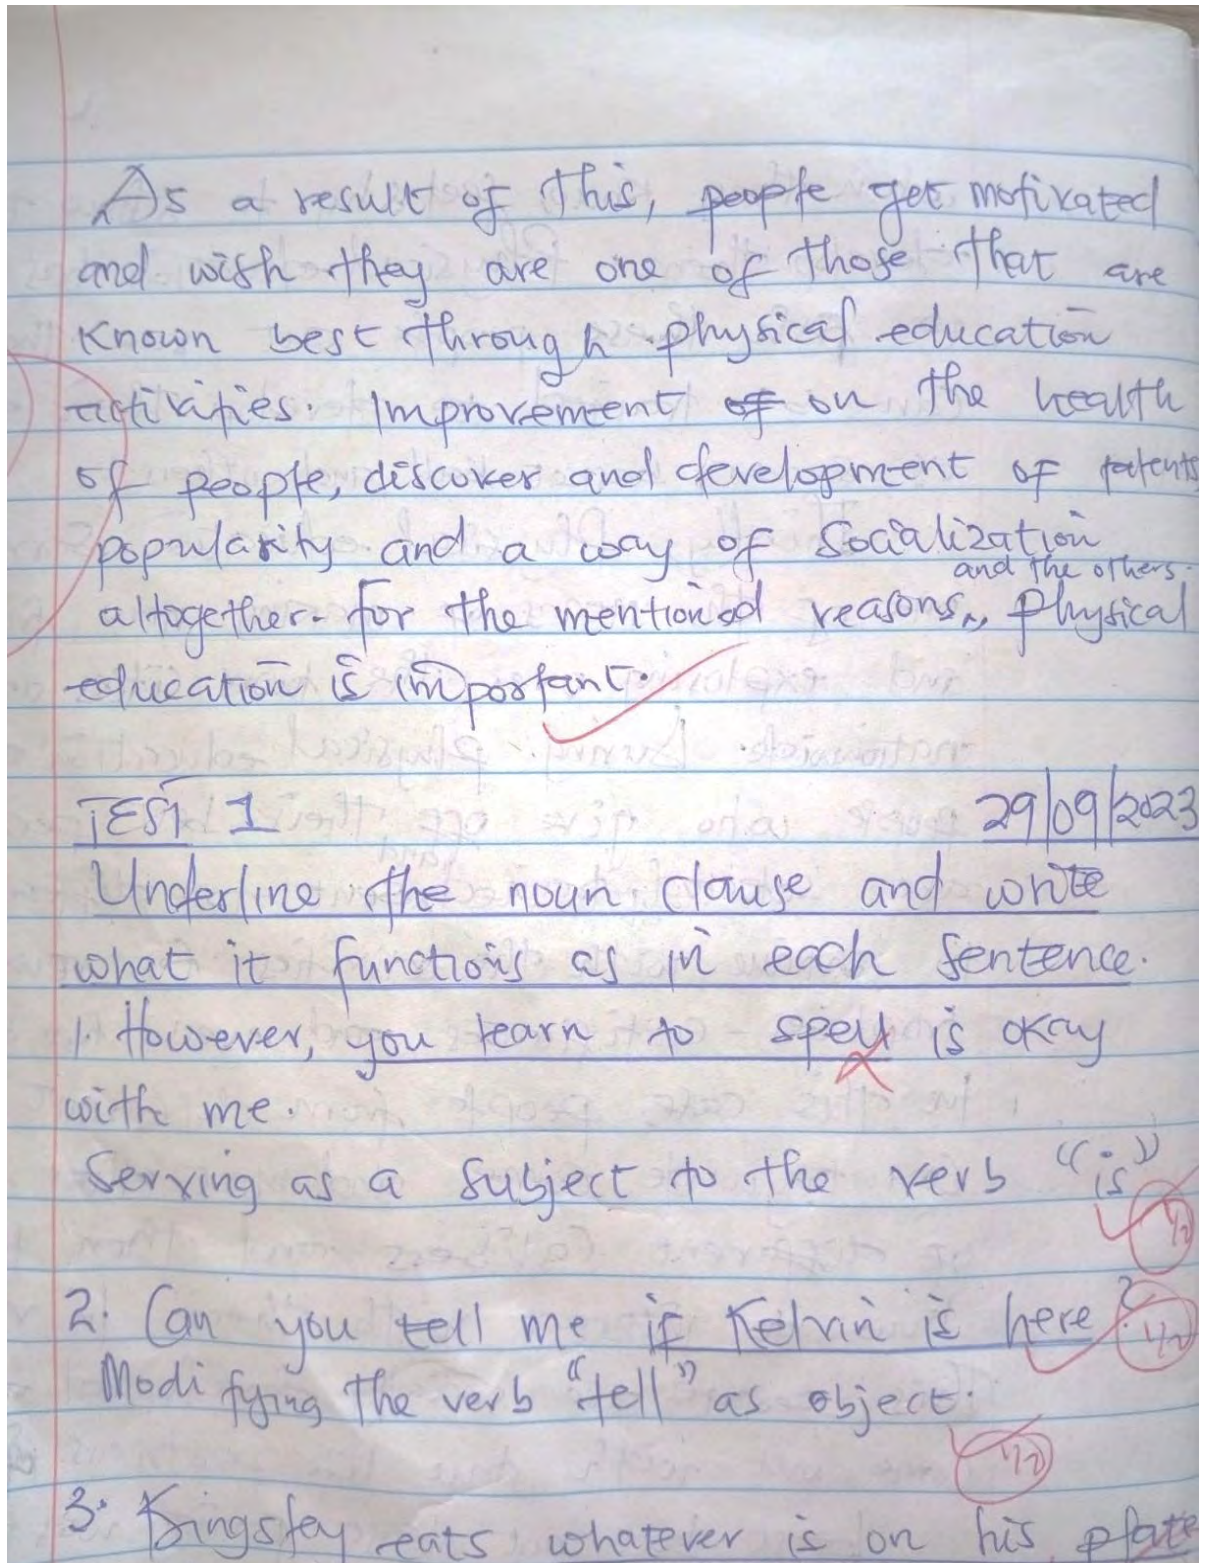 As a result of this, people get motivated
and wish they are one of those that are
known best through physical education
activities. Improvement of on the health
of people, discover and development of talents
popularity and a way of socialization
and the others.
altogether. For the mentioned reasons, physical
education is important.
TEST 1 29/09/2023
Underline the noun clause and write
what it functions as in each sentence.
1. However, you learn to spell is okay
with me.
Serving as a subject to the verb "is"
1/2
2. Can you tell me if Kelvin is here?
1/2
Modifying the verb "tell" as object.
1/2
3. Kingsley eats whatever is on his plate